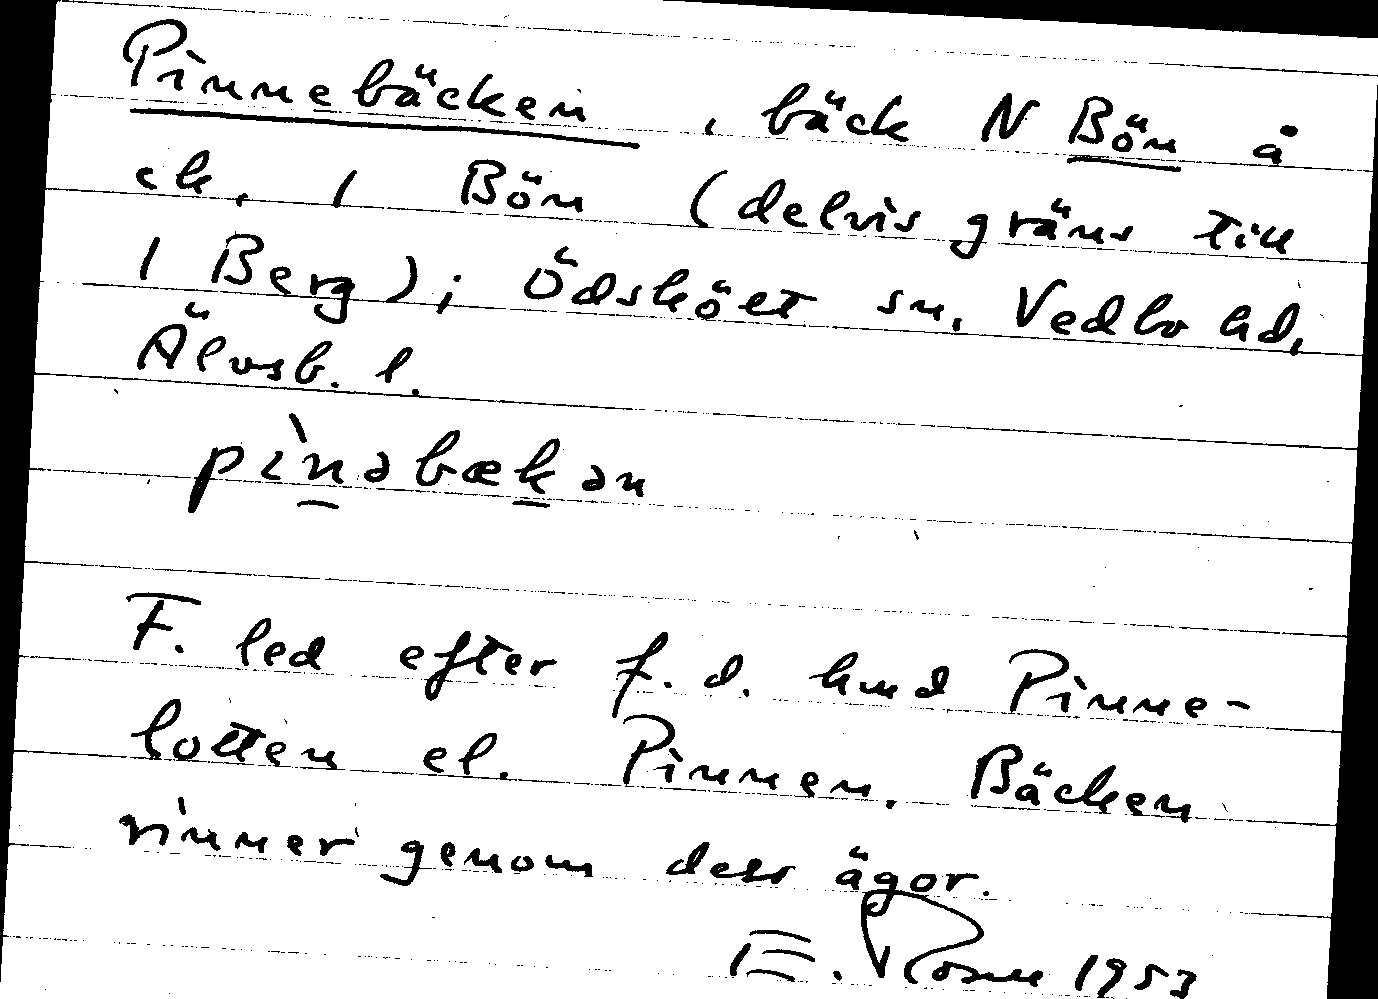 Pinnebäcken, bäck N Bön å
ek. 1 Bön (delvis gräns till
1 Berg); Ödskölt sn. Vedbo hd,
Älvsb. l.
pìnəbækən
F. led efter f.d. hmd Pinne-
lotten el. Pinnen. Bäcken
rinner genom dess ägor.
E. Rosell 1953